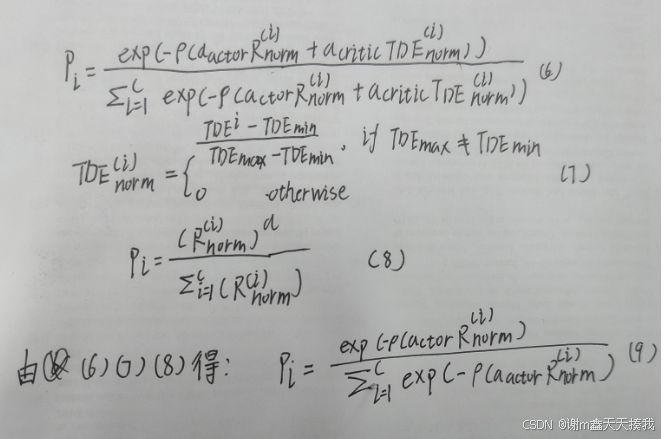 P_i = exp(-ρ(a_actor R_norm^(i) + a_critic TDE_norm^(i))) / Σ_{i=1}^C exp(-ρ(a_actor R_norm^(i) + a_critic TDE_norm^(i))) (6)
TDE_norm^(i) = { (TDE^i - TDE_min) / (TDE_max - TDE_min), if TDE_max ≠ TDE_min
0 otherwise (7)
P_i = (R_norm^(i))^a / Σ_{i=1}^C (R_norm^(i)) (8)
由 (6) (7) (8) 得: P_i = exp(-ρ(actor R_norm^(i)) / Σ_{i=1}^C exp(-ρ(a_actor R_norm^(i)) (9)
CSDN @谢m鑫天天揍我